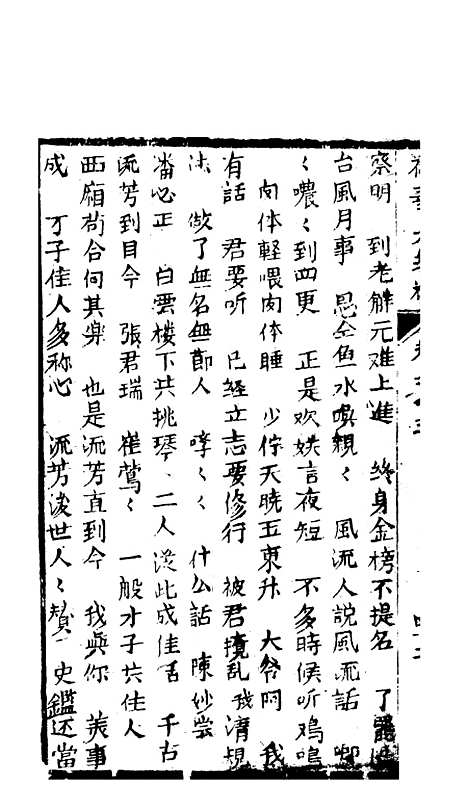 察明　到老解元难上進　终身金榜不提名　了
台風月事　恩全鱼水唤親〻　風流人説風流話　唧
〻噥〻到四更　正是欢娱言夜短　不多時候听鸡鳴
肉体輕喂肉体睡　少停天曉玉東升　大爷阿　我
有話　君要听　已經立志要修行　被君攪乱我清規
法　做了無名無節人　哼〻〻　什么話　陳妙尝
潘必正　白雲楼下共挑琴、二人从此成佳话　千古
流芳到目今　張君瑞　崔莺〻　一般才子共佳人
西廂苟合何其樂　也是流芳直到今　我與你　美事
成　才子佳人多称心　流芳後世人〻贊　史鑑还當